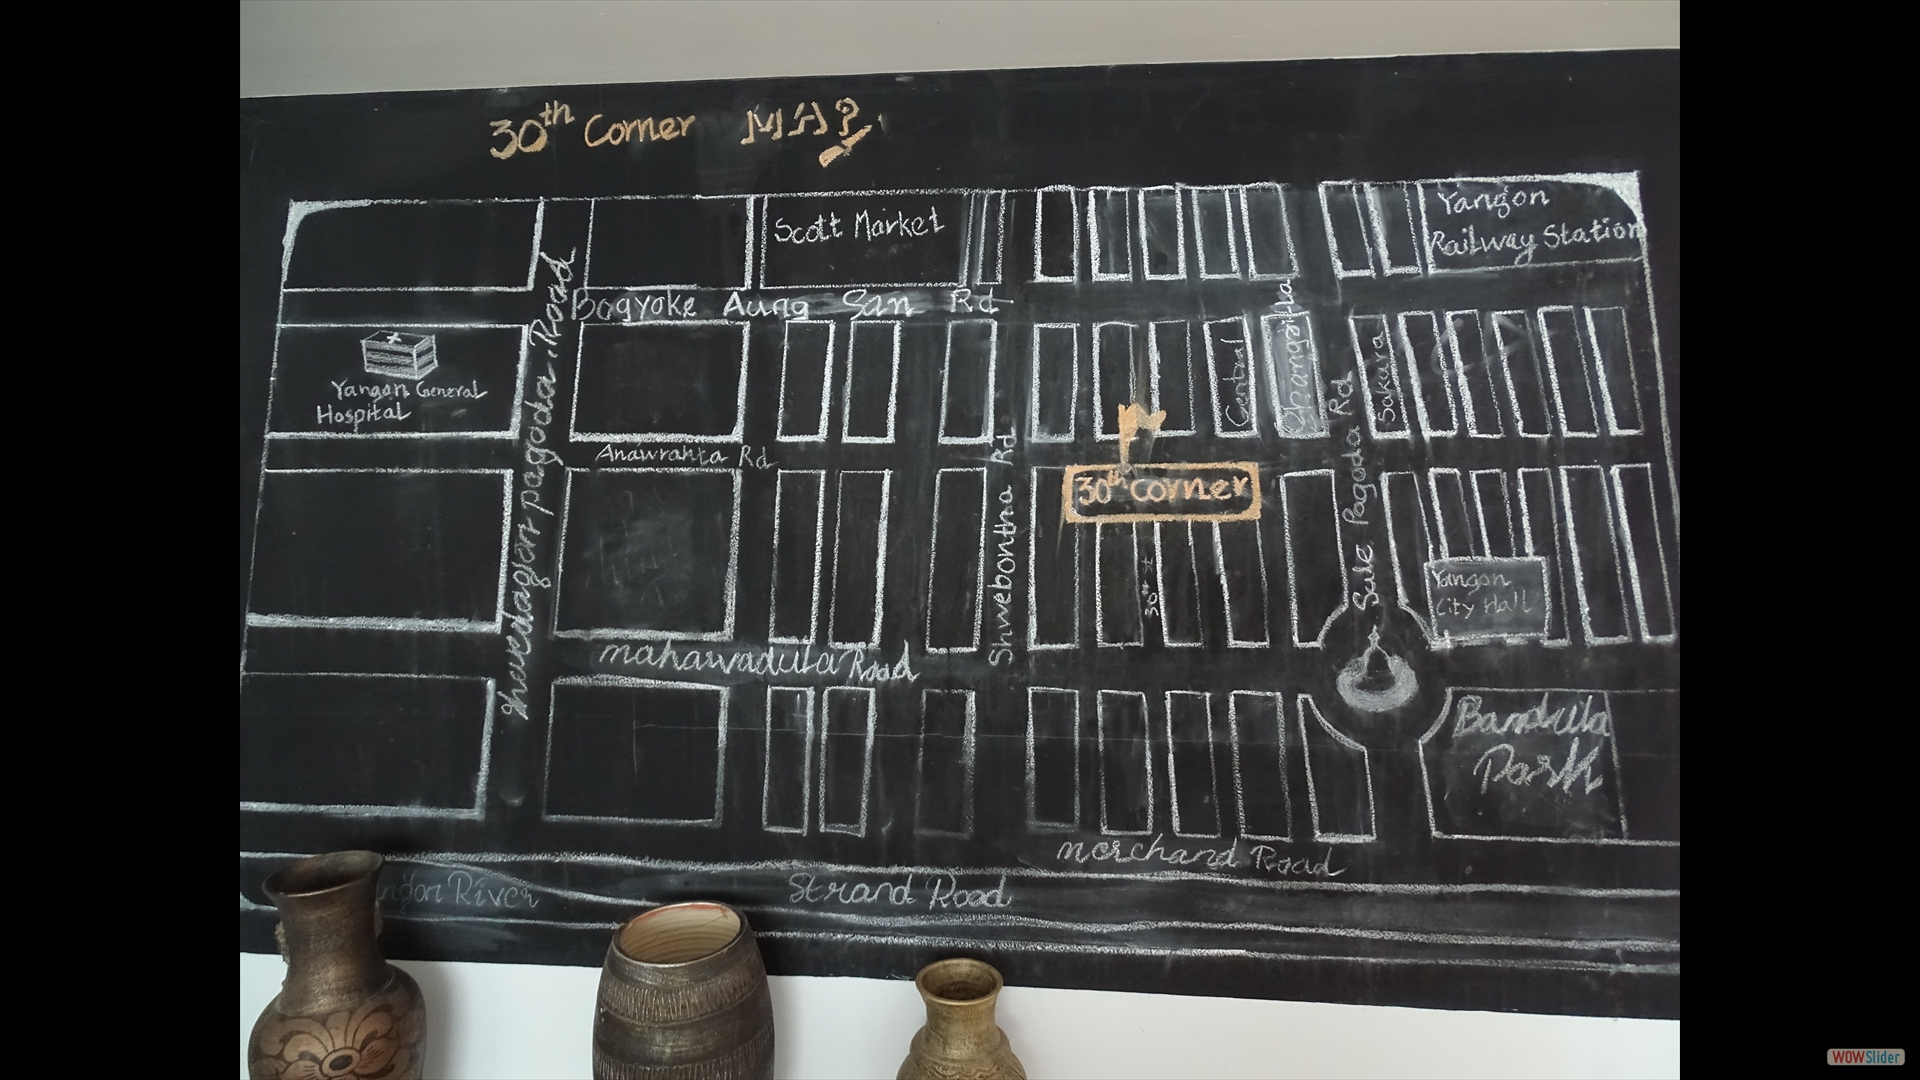 30th Corner MAP
Scott Market
Yangon
Railway Station
Bogyoke Aung San Rd
Yangon General
Hospital
Shwedagon pagoda Road
Anawrahta Rd
Central
Shangrila
Sakura
Sule Pagoda Rd
Shwebontha Rd
30th corner
30th st
Yangon
City Hall
mahawadula Road
Bandula
Park
merchand Road
Strand Road
River
WOWSlider